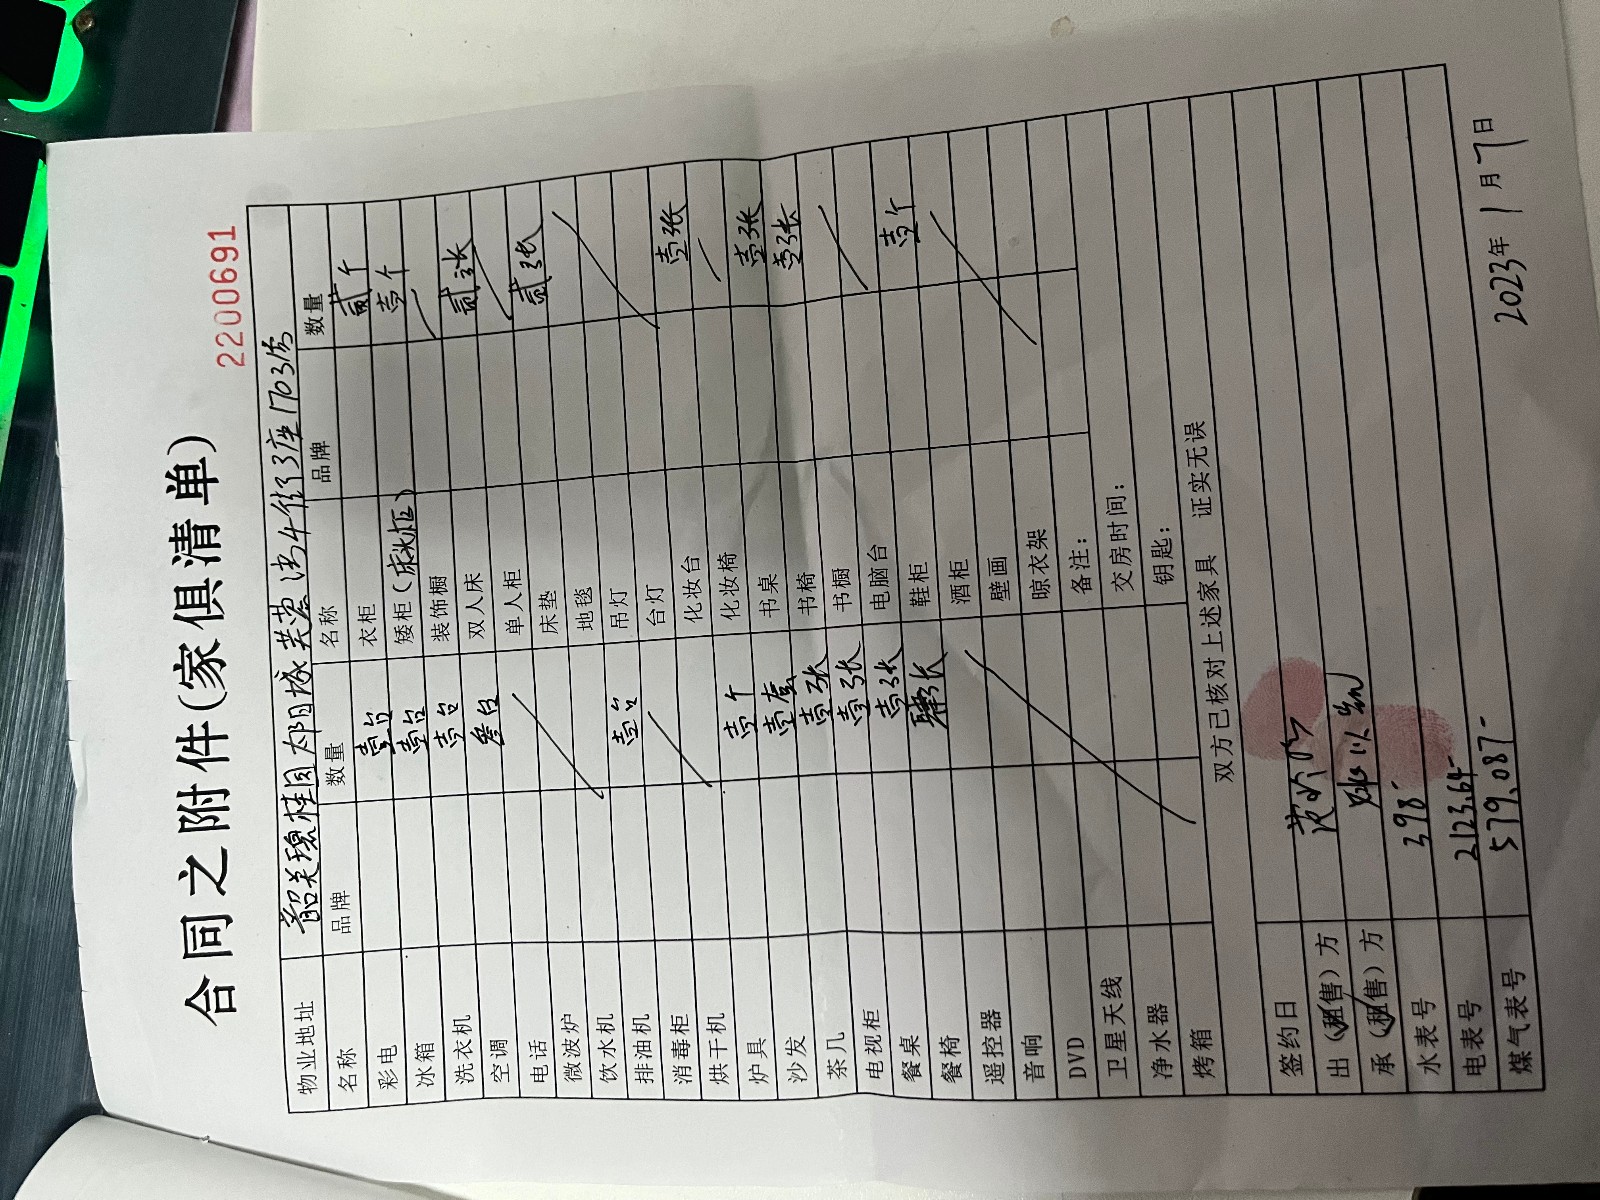 合同之附件(家俱清单)
2200691
物业地址 韶关碧桂园太阳城芙蓉街3座1703房
名称 品牌 数量 名称 品牌 数量
彩电 壹台 衣柜 贰个
冰箱 壹台 矮柜(床头柜) 壹个
洗衣机 壹台 装饰橱
空调 叁台 双人床 贰张
电话 单人柜
微波炉 床垫 贰张
饮水机 地毯
排油机 壹台 吊灯
消毒柜 台灯
烘干机 化妆台 壹张
炉具 壹个 化妆椅
沙发 壹套 书桌 壹张
茶几 壹张 书椅 壹张
电视柜 壹张 书橱
餐桌 壹张 电脑台
餐椅 肆张 鞋柜 壹个
遥控器 酒柜
音响 壁画
DVD 晾衣架
卫星天线 备注:
净水器 交房时间:
烤箱 钥匙:
双方已核对上述家具 证实无误
签约日
出(租售)方
承(租售)方
水表号 398-
电表号 2123.64-
煤气表号 579.087-
2023年1月7日